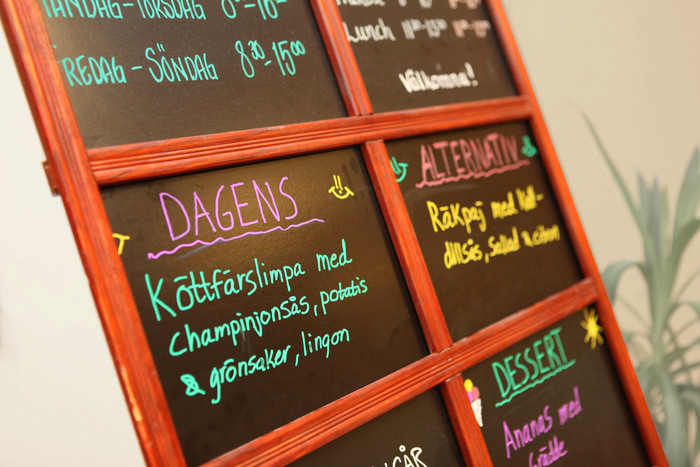 MÅNDAG-TORSDAG
FREDAG-SÖNDAG 8³⁰-15⁰⁰
Lunch
Välkomna!
DAGENS
Köttfärslimpa med
champinjonsås, potatis
& grönsaker, lingon
ALTERNATIV
Räkpaj med kall-
dillsås, sallad & citron
DESSERT
Ananas med
grädde